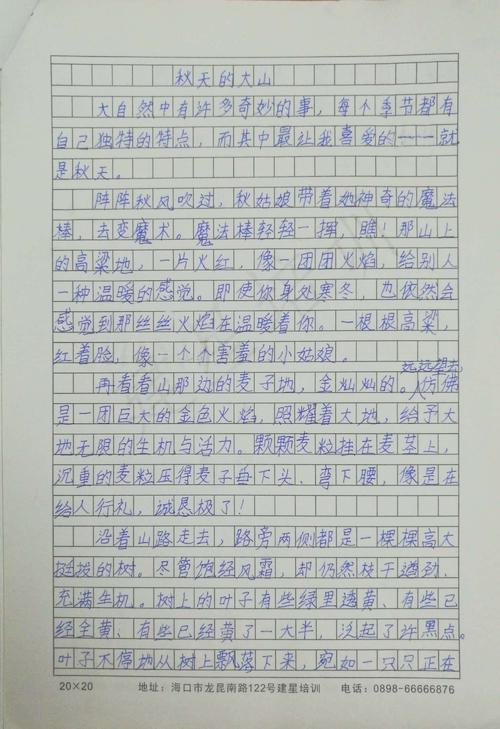 秋天的大山
大自然中有许多奇妙的事，每个季节都有
自己独特的特点，而其中最让我喜爱的——就
是秋天。
阵阵秋风吹过，秋姑娘带着她神奇的魔法
棒，去变魔术。魔法棒轻轻一挥，瞧！那山上
的高粱地，一片火红，像一团团火焰，给别人
一种温暖的感觉。即使你身处寒冬，也依然会
感觉到那丝丝火焰在温暖着你。一根根高粱，
红着脸，像一个个害羞的小姑娘。
再看看山那边的麦子地，金灿灿的。远远望去，仿佛
是一团巨大的金色火焰，照耀着大地，给予大
地无限的生机与活力。颗颗麦粒挂在麦茎上，
沉重的麦粒压得麦子每下头、弯下腰，像是在
给人行礼，诚恳极了！
沿着山路走去，路旁两侧都是一棵棵高大
挺拔的树。尽管饱经风霜，却仍然枝干遒劲、
充满生机。树上的叶子有些绿里透黄、有些已
经全黄、有些已经黄了一大半，泛起了许黑点。
叶子不停地从树上飘落下来，宛如一只只正在
20×20 地址：海口市龙昆南路122号建星培训 电话：0898-66666876